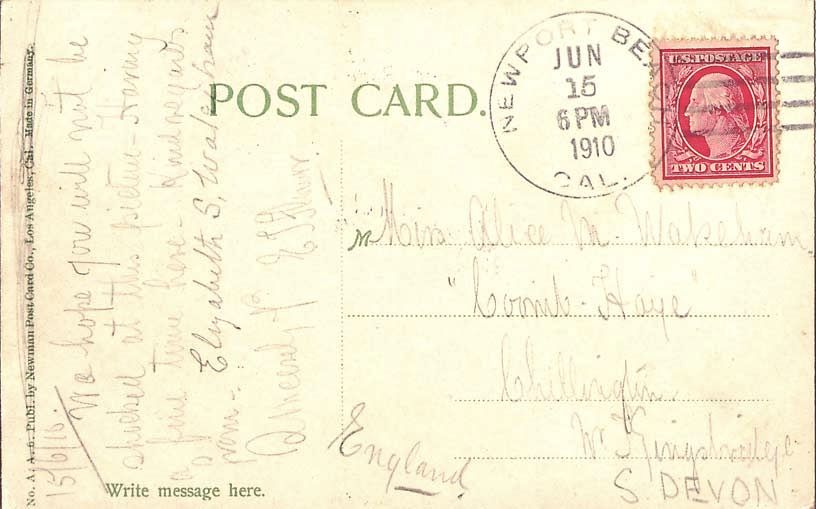 No. A. A. 6. Publ. by Newman Post Card Co., Los Angeles, Cal. Made in Germany.
15/6/10.
We hope you will not be
shocked at this picture - Having
a fine time here - Kind regards
from -
Elizabeth S. Wakeham
Sincerely Yr
Write message here.
POST CARD.
NEWPORT BE
JUN
15
6 PM
1910
CAL.
U.S. POSTAGE
TWO CENTS
Miss Alice M. Wakeham
"Coomb-Haye"
Chillington
Nr Kingsbridge
S DEVON
England